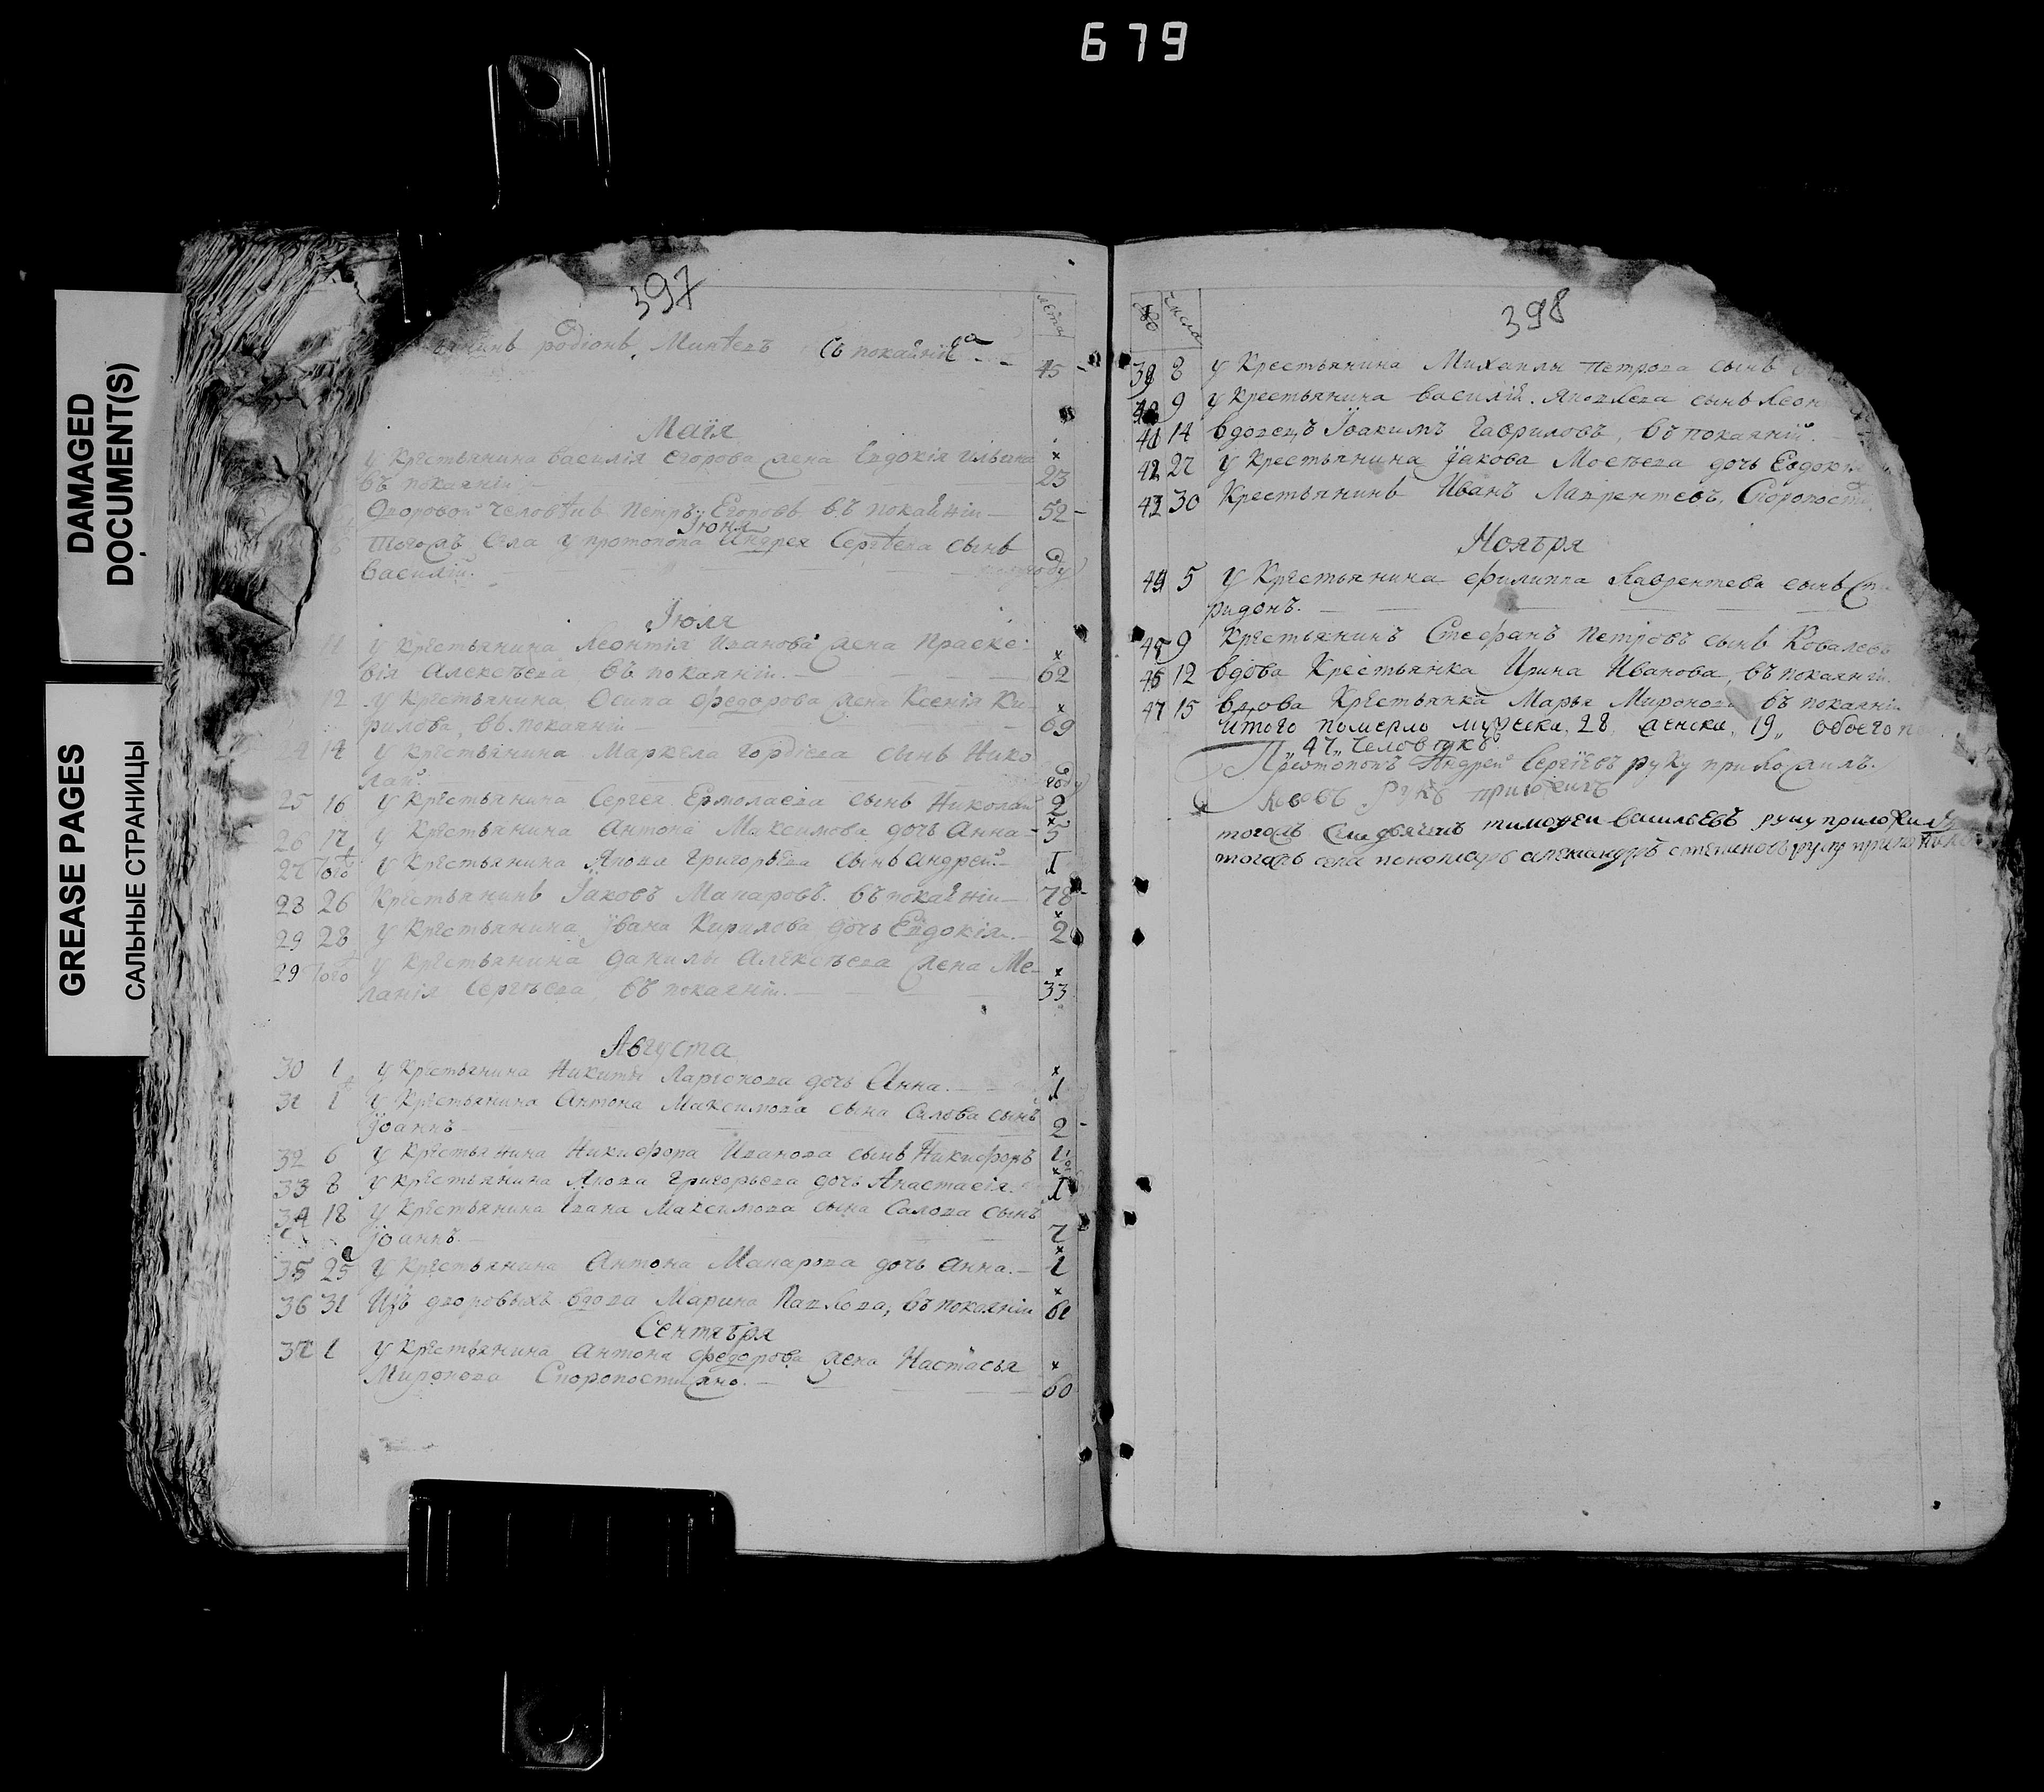 679
DAMAGED
DOCUMENT(S)
GREASE PAGES
САЛЬНЫЕ СТРАНИЦЫ
397
лѣта
родіонъ Матѳеевъ съ покаяніемъ 45
Маія
у Крестьянина василія егорова жена Евдокія ильина
въ покаяніи 23
Дворовой человѣкъ Петръ Егоровъ въ покаяніи 52
Іюня
тогожъ села у протопопа Андрея Сергѣева сынъ
василій
Іюля
11 у Крестьянина Леонтія Иванова жена Праске
вія Алексѣева въ покаяніи 62
12 у Крестьянина Осипа федорова жена Ксенія Ки
рилова, въ покаяніи 69
14 у крестьянина Маркела гордѣева сынъ Нико
лай
25 16 у Крестьянина Сергея Ермолаева сынъ Николай 2
26 17 у Крестьянина Антона Максимова дочь Анна 5
27 того у Крестьянина Якова григорьева сынъ андрей 1
28 26 Крестьянинъ Іаковъ Макаровъ въ покаяніи 78
29 28 у Крестьянина Ивана Кирилова дочь Евдокія 2
29 того у крестьянина данилы алексѣева жена Ме
ланія Сергѣева, въ покаяніи 33
Августа
30 1 у крестьянина Никиты Ларіонова дочь Анна 1
31 1 у Крестьянина Антона Максимова сына Салова сынъ
Іоаннъ 2
32 6 у Крестьянина Никифора Иванова сынъ Никифоръ
33 8 у крестьянина Якова григорьева дочь Анастасія 1
34 18 у Крестьянина Ивана Максимова сына Салова сынъ
Іоаннъ
35 25 у Крестьянина Антона Макарова дочь анна 1
36 31 Изъ дворовыхъ вдова Марина Павлова, въ покаяніи 61
Сентября
37 1 у крестьянина антона федорова жена Настасья
Миронова Скоропостижно 60
398
числа
39 8 у Крестьянина Михаилы петрова сынъ
9 у Крестьянина василій Яковлева сынъ Леон
41 14 вдовецъ Іоакимъ Гавриловъ, въ покаяніи
42 27 у Крестьянина Іакова Мосѣева дочь Евдокі
43 30 Крестьянинъ Иванъ Лаврентевъ Скоропости
Ноября
44 5 у Крестьянина филиппа Лаврентева сынъ Спи
ридонъ
9 Крестьянинъ Стефанъ Петровъ сынъ Ковалевъ
46 12 вдова Крестьянка Ирина Иванова, въ покаяніи
47 15 вдова Крестьянка Марья Миронова въ покаяні
итого померло мужеска 28, женска 19, обоего п
„47„ человѣкъ
Протопопъ Андрей Сергіевъ руку приложилъ
руку приложилъ
тогожъ села дьячекъ тимофеи васильевъ руку приложилъ
тогожъ села пономарь александръ степановъ руку приложилъ